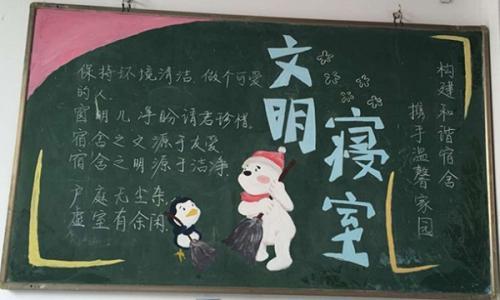 保持环境清洁.做个可爱
的人.
窗明几净盼请君珍惜.
宿舍之文源于友爱
宿舍之明源于洁净.
户庭无尘杂,
虚室有余闲.
文明
寝室
构建和谐宿舍
携手温馨家园